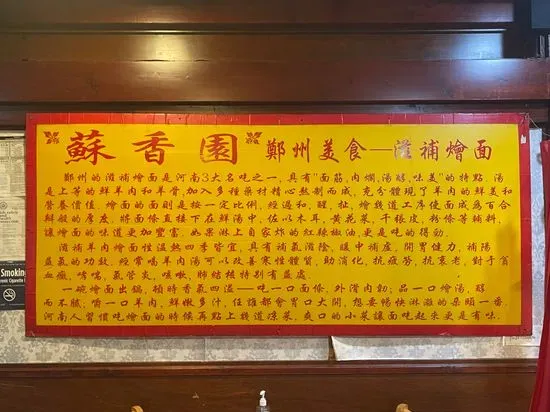 蘇香園 鄭州美食—滋補燴面
鄭州的滋補燴面是河南3大名吃之一,具有"面筋,肉爛,湯醇,味美"的特點,湯
是上等的鮮羊肉和羊骨,加入多種藥材精心熬制而成,充分體現了羊肉的鮮美和
營養價值,燴面的面則是按一定比例,經過和,醒,扯,燴幾道工序使面成為百合
辦般的厚度,將面條直接下在鮮湯中,佐以木耳,黃花菜,千張皮,粉條等輔料,
讓燴面的味道更加豐富,如果淋上自家炸的紅辣椒油,更是吃的得勁.
滋補羊燴面性溫熱四季皆宜,具有補氣滋陰,暖中補虛,開胃健力,補陽
益氣的功效,經常喝羊肉湯可以改善寒性體質,助消化,抗疲勞,抗衰老,對于貧
血癥,哮喘,氣管炎,咳嗽,肺結核特別有益處.
一碗燴面出鍋,頓時香氣四溢——吃一口面條,外滑內勁,品一口燴湯,醇
而不膩,嘗一口羊肉,鮮嫩多汁,任誰都會胃口大開,想要暢快淋漓的朵頤一番,
河南人習慣吃燴面的時候再點上幾道涼菜,爽口的小菜讓面吃起來更是有味.
Smoking